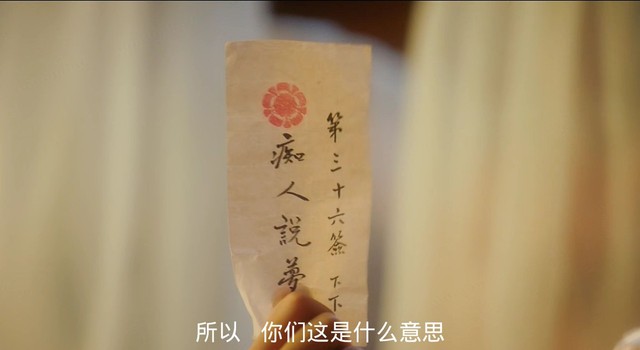 第三十六签 下下
痴人說夢
所以 你们这是什么意思